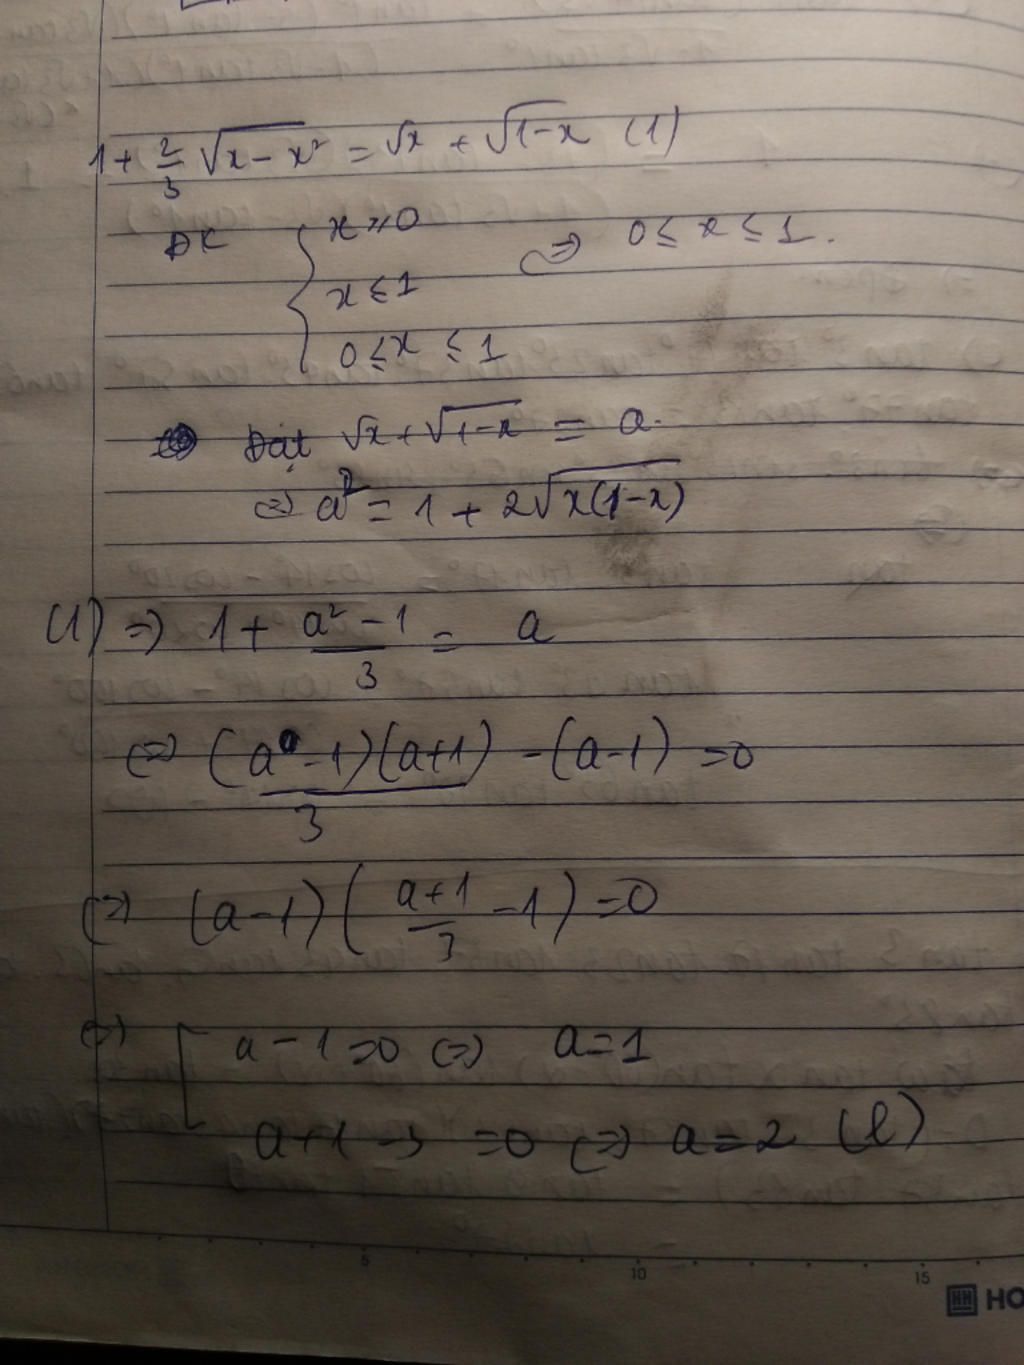 1 + 2/3 √(x − x²) = √x + √(1−x) (1)
ĐK { x ≥ 0 ⇒ 0 ≤ x ≤ 1.
x ≤ 1
0 ≤ x ≤ 1
Đặt √x + √(1−x) = a.
⇒ a² = 1 + 2√(x(1−x))
(1) ⇒ 1 + (a² − 1)/3 = a
⇔ (a − 1)(a+1)/3 − (a−1) = 0
⇔ (a−1)((a+1)/3 − 1) = 0
⇔ [ a − 1 = 0 ⇔ a = 1
a + 1 − 3 = 0 ⇔ a = 2 (l)
5 10 15
HO